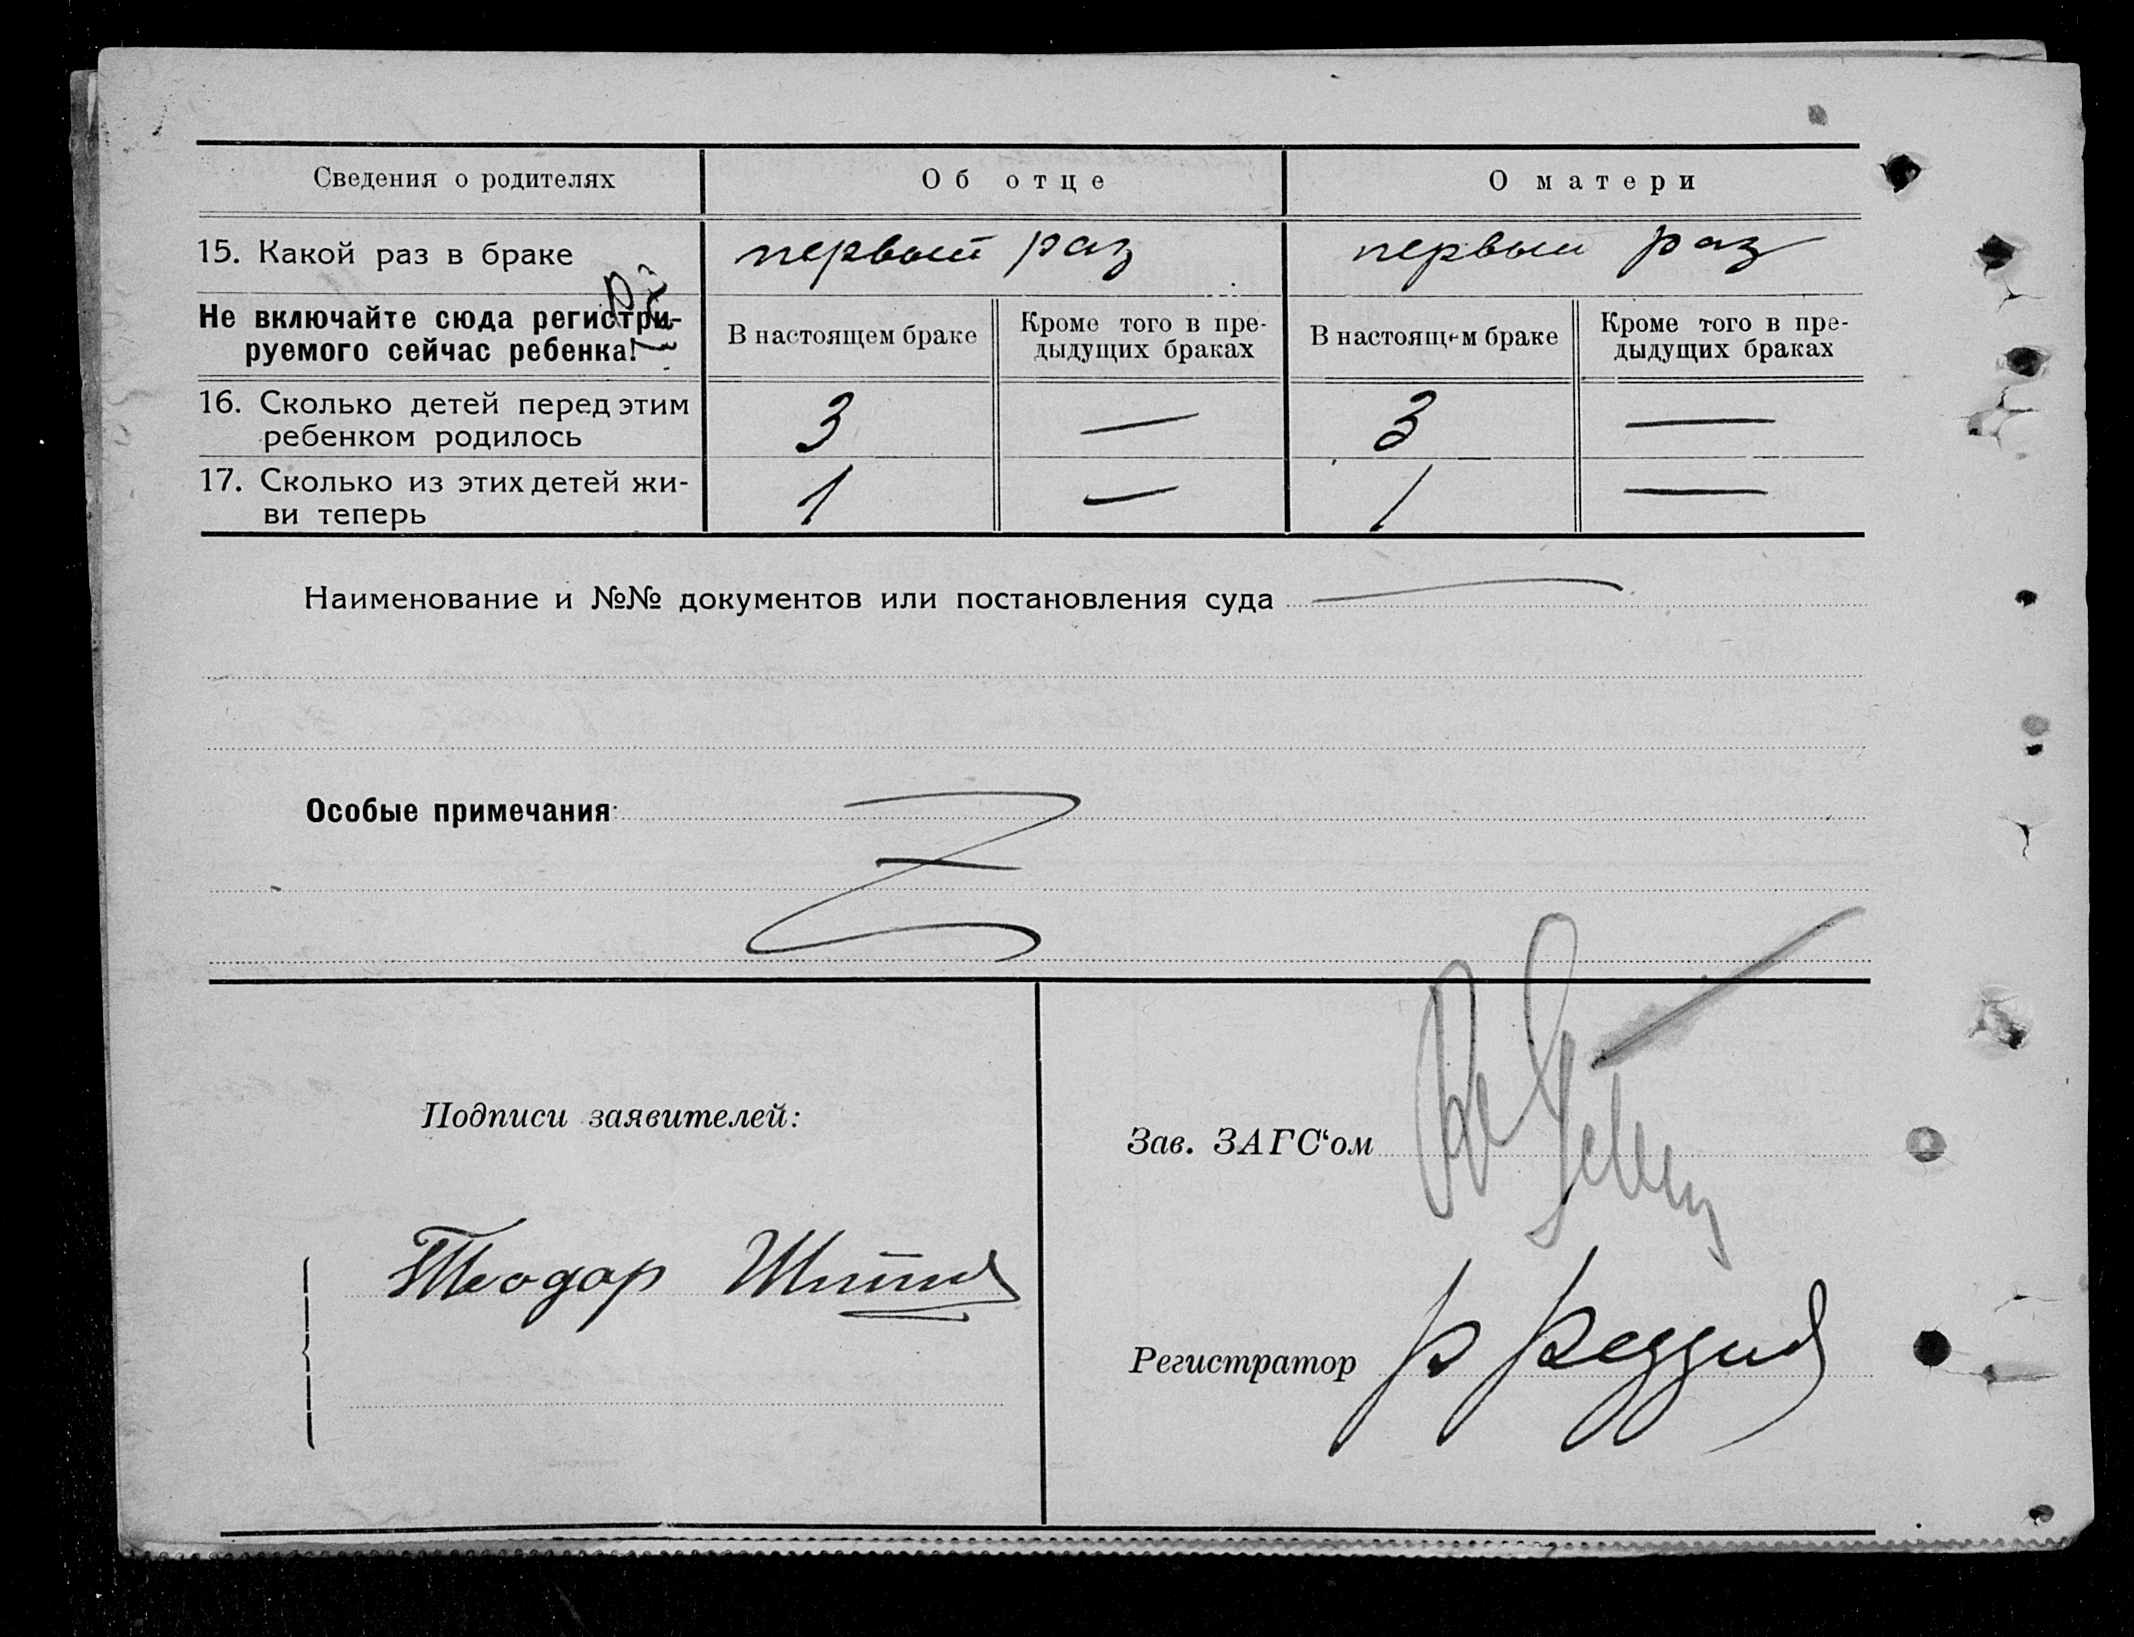 Сведения о родителях Об отце О матери
15. Какой раз в браке первый раз первый раз
Не включайте сюда регистри-
руемого сейчас ребенка!
В настоящем браке Кроме того в пре-
дыдущих браках
В настоящем браке Кроме того в пре-
дыдущих браках
16. Сколько детей перед этим
ребенком родилось 3 — 3 —
17. Сколько из этих детей жи-
ви теперь 1 — 1 —
Наименование и №№ документов или постановления суда —
Особые примечания:
Подписи заявителей:
Теодор
Зав. ЗАГС‘ом
Регистратор Р